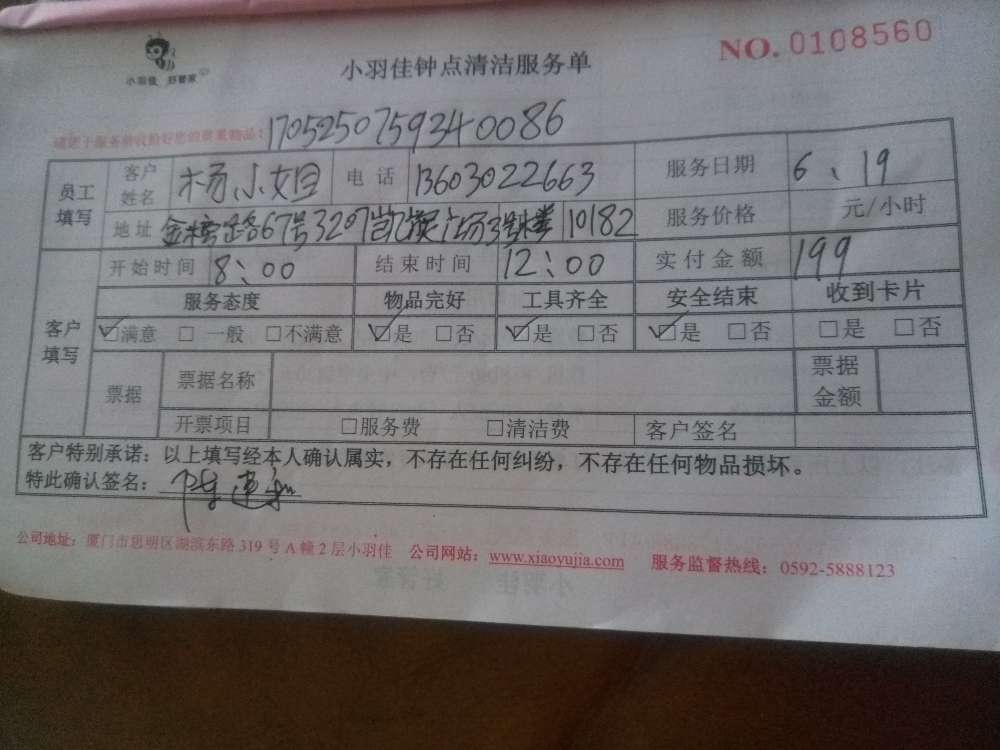 小羽佳 好管家
小羽佳钟点清洁服务单
NO. 0108560
请您于服务前收拾好您的贵重物品: 170525075934 0086
员工填写 客户姓名 杨小姐 电话 13603022663 服务日期 6、19
地址 金榜路67号3207凯旋广场3号楼 10182 服务价格 元/小时
客户填写 开始时间 8:00 结束时间 12:00 实付金额 199
服务态度 物品完好 工具齐全 安全结束 收到卡片
☑满意 □ 一般 □不满意 ☑是 □否 ☑是 □否 ☑是 □否 □是 □否
票据 票据名称 票据金额
开票项目 □服务费 □清洁费 客户签名
客户特别承诺：以上填写经本人确认属实，不存在任何纠纷，不存在任何物品损坏。
特此确认签名：
公司地址：厦门市思明区湖滨东路 319 号 A 幢 2 层小羽佳 公司网站：www.xiaoyujia.com 服务监督热线：0592-5888123